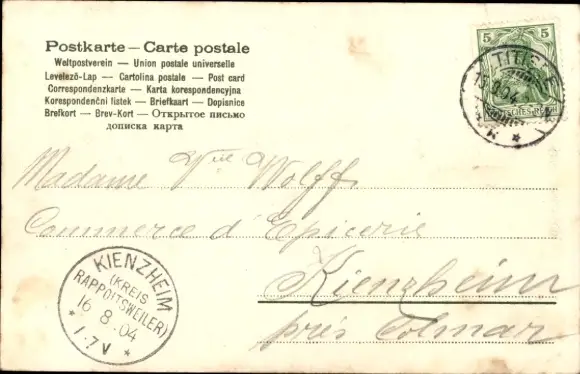 Postkarte — Carte postale
Weltpostverein — Union postale universelle
Levelező-Lap — Cartolina postale — Post card
Correspondenzkarte — Karta korespondencyjna
Korespondenční lístek — Briefkaart — Dopisnice
Brefkort — Brev-Kort — Открытое письмо
дописка карта
5 5
TITISEE
.04
DEUTSCHES REICH
Madame Vve Wolff
Commerce d'Epicerie
Kienzheim
près Colmar
KIENZHEIM
(KREIS
RAPPOLTSWEILER)
16 8 04
* 1-7 V *